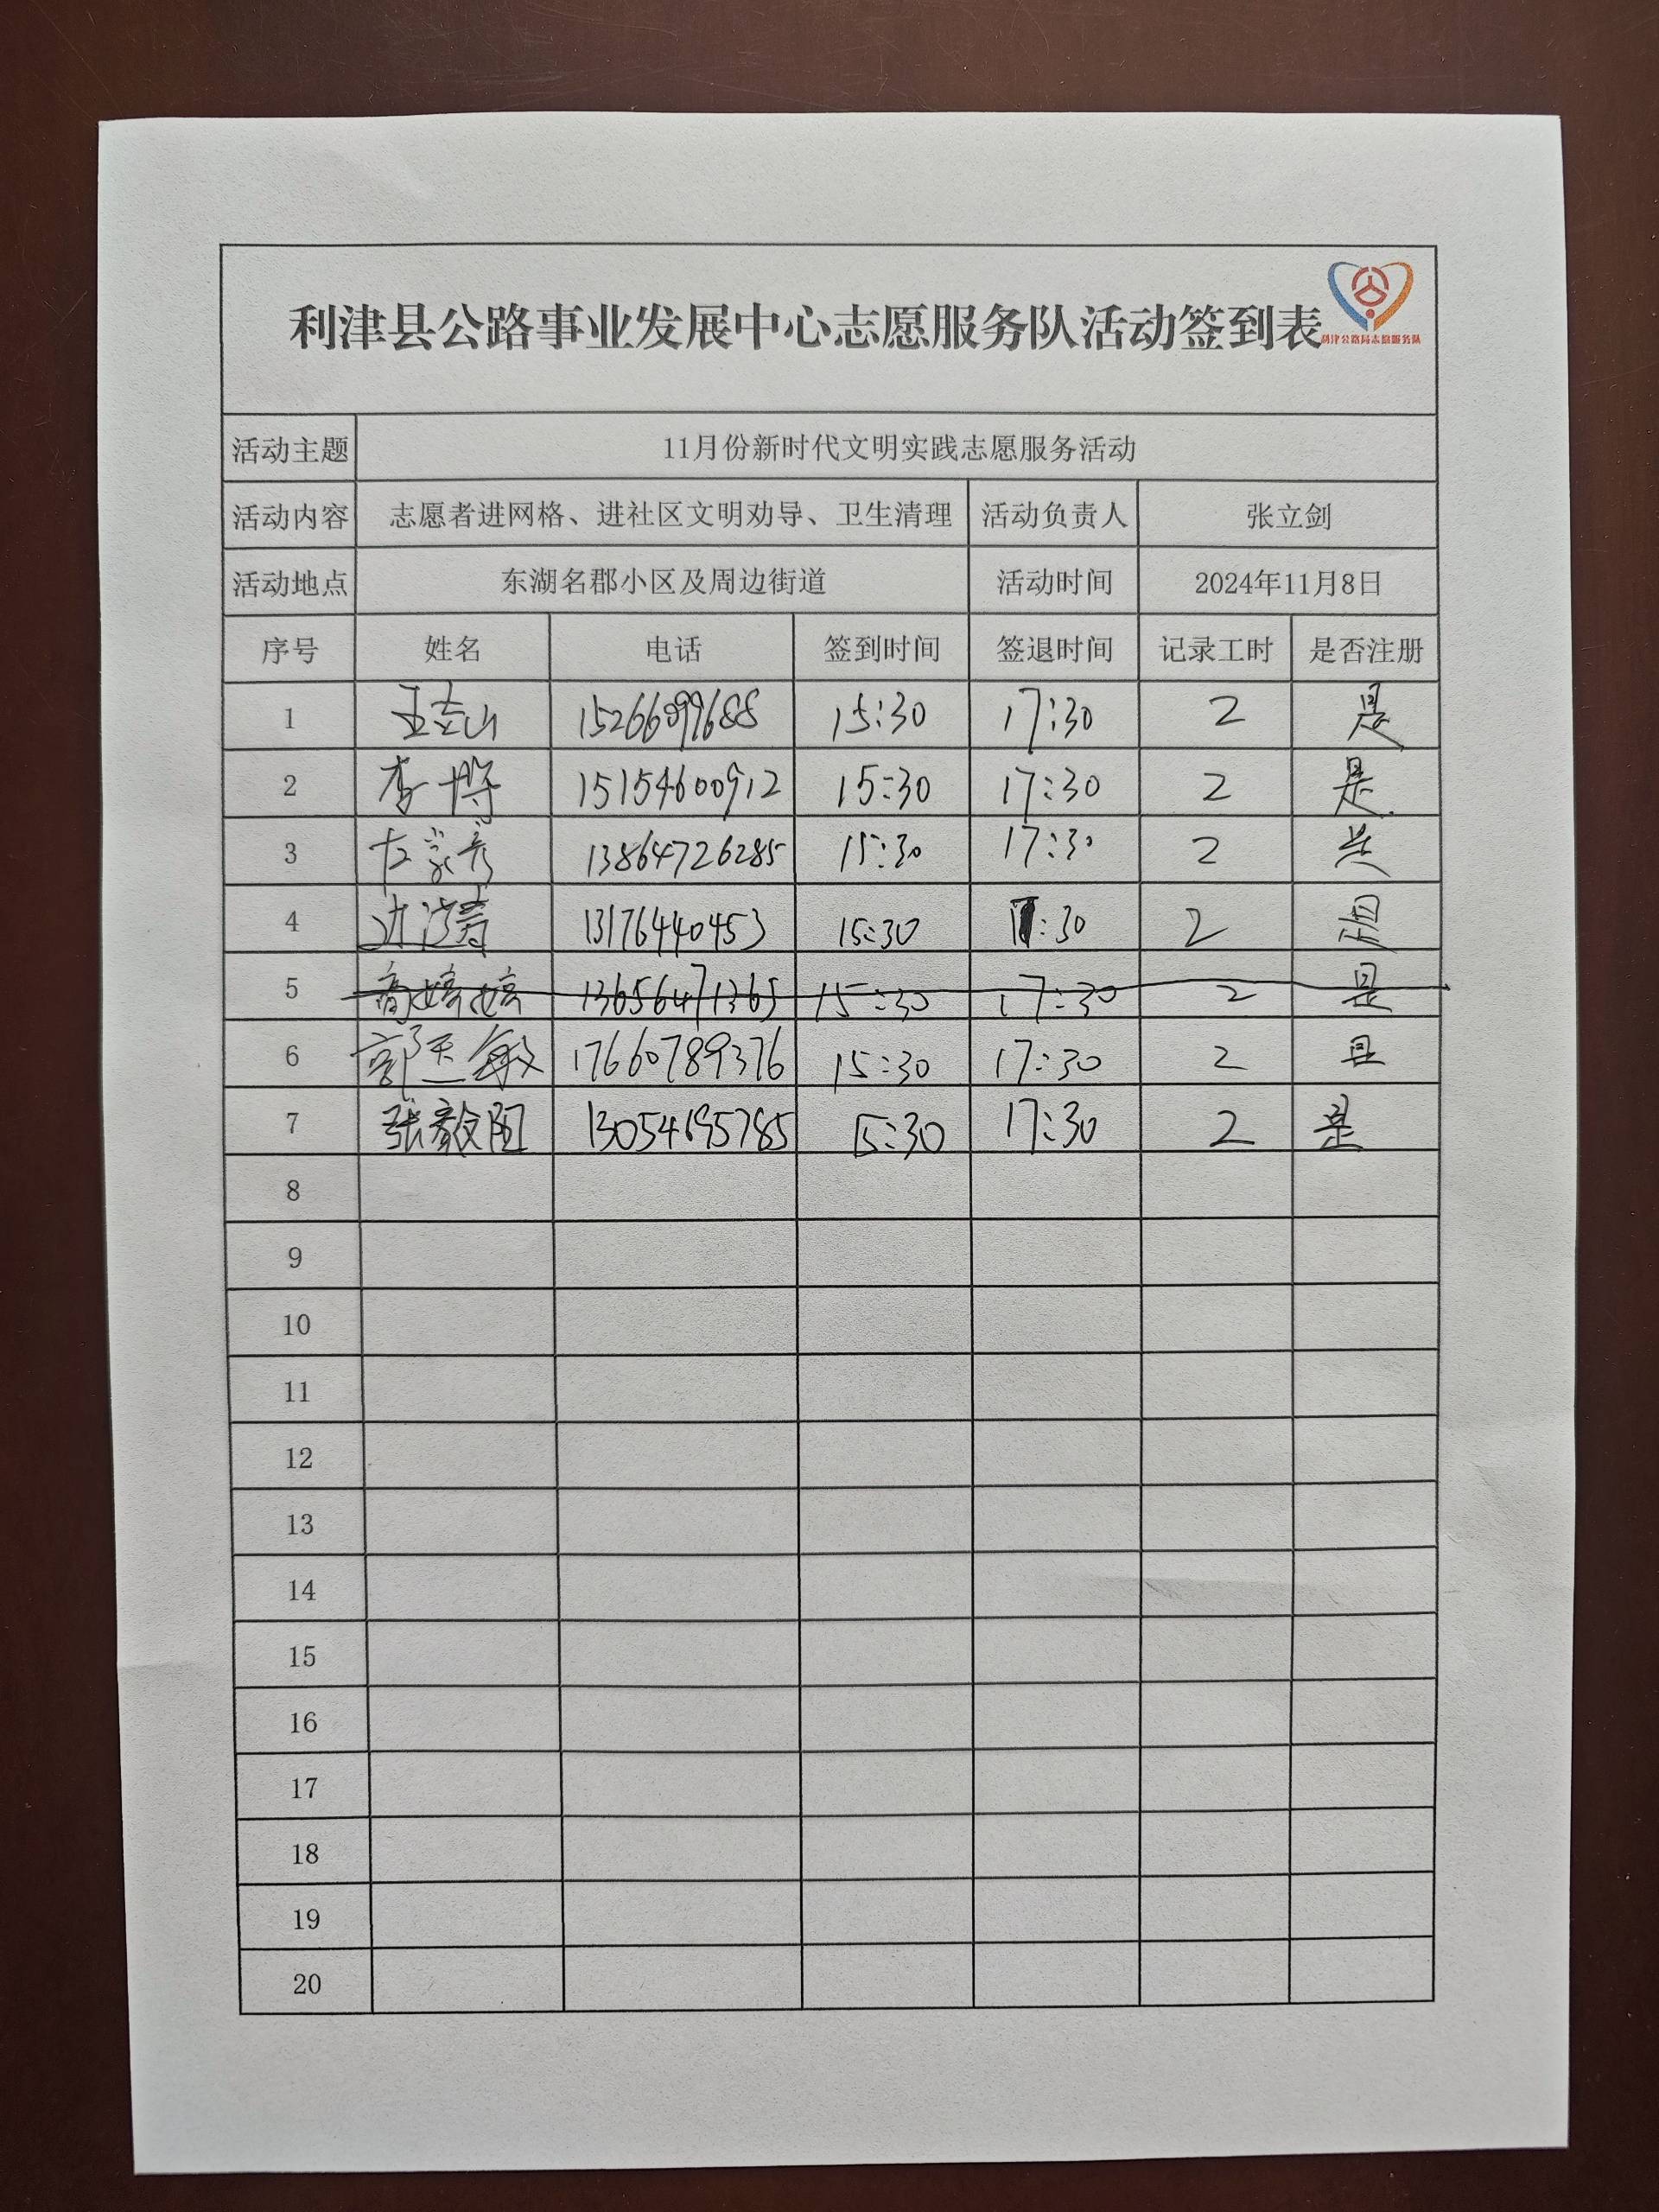 利津县公路事业发展中心志愿服务队活动签到表
利津公路局志愿服务队
活动主题 11月份新时代文明实践志愿服务活动
活动内容 志愿者进网格、进社区文明劝导、卫生清理 活动负责人 张立剑
活动地点 东湖名郡小区及周边街道 活动时间 2024年11月8日
序号 姓名 电话 签到时间 签退时间 记录工时 是否注册
1 山 15266099688 15:30 17:30 2 是
2 李博 15154600912 15:30 17:30 2 是
3 13864726285 15:30 17:30 2 是
4 13176440453 15:30 17:30 2 是
5 高婷婷 13656471365 15:30 17:30 2 是
6 郭 敏 17660789376 15:30 17:30 2 是
7 张毅 13054695785 15:30 17:30 2 是
8
9
10
11
12
13
14
15
16
17
18
19
20